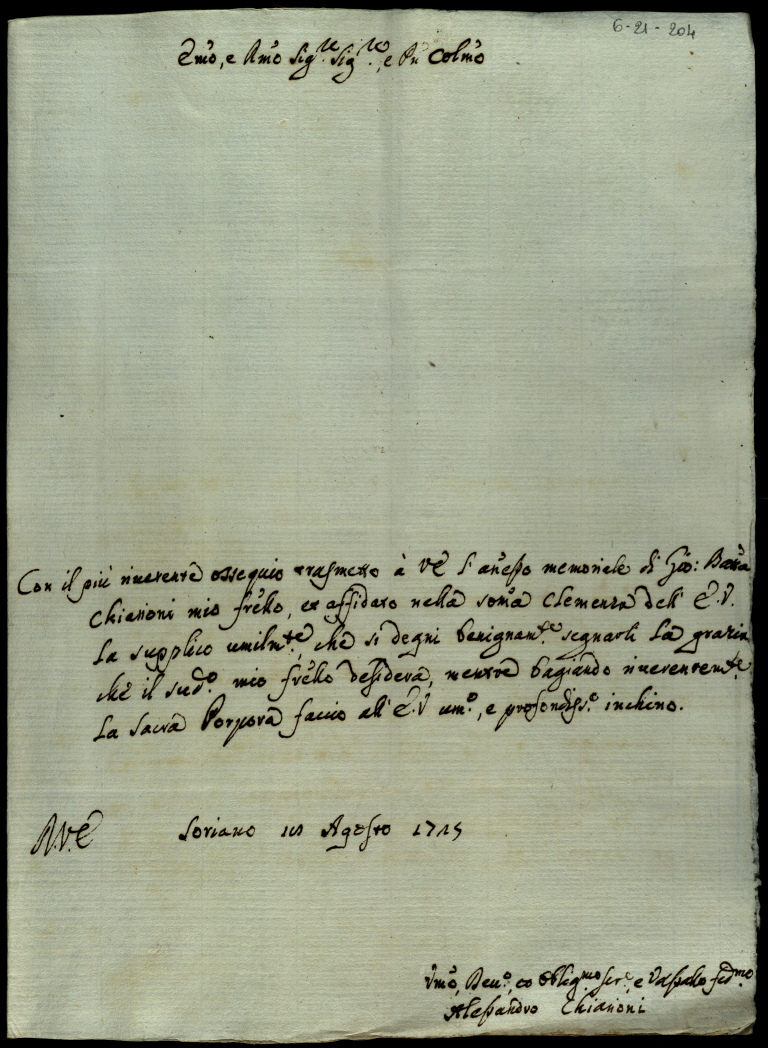 6-21-204
Emo, e Rmo Sig.re Sig.re, e Pñ Colmo
Con il più riverente ossequio trasmetto à VE l'añesso memoriale di Gio: Batta
Chiarioni mio frello, et affidato nella soma Clemenza dell' E.V.
La supplico umilmte, che si degni benignamte segnarli la grazia
che il sudo mio frello desidera, mentre bagiando riverentemte
La Sacra Porpora faccio all' E.V umo, e profondisso inchino.
A.V.E Soriano Agosto
Vmo, Devo, et obligmo serre, e Vassallo fedmo
Alessandro Chiarioni